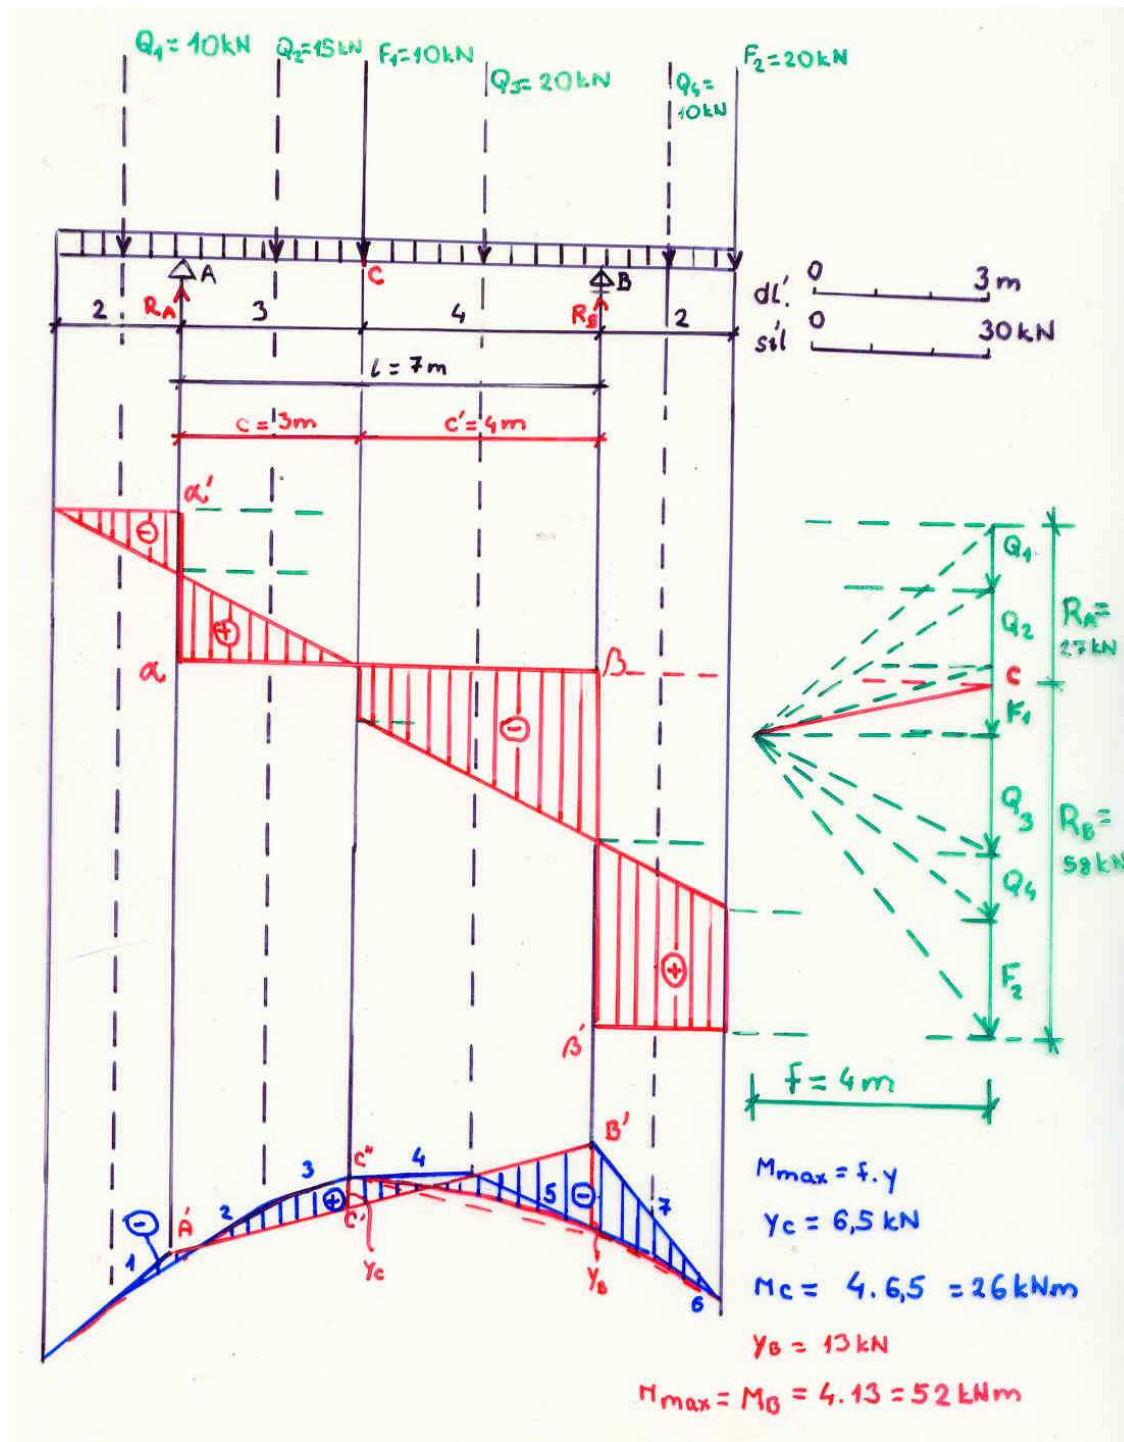 Q₁= 10kN Q₂=15kN F₁=10kN F₂=20kN
Q₃= 20kN Q₄= 10kN
A C B
R_A R_B
2 3 4 2
dĺ. 0 3 m
síl 0 30 kN
l = 7 m
c = 3m c' = 4m
α'
⊖
⊕
α β
⊖
⊕
β'
Q₁
Q₂
C
F₁
Q₃
Q₄
F₂
R_A= 27kN
R_B= 58kN
f = 4 m
B'
C" 4
3
⊕ 5 ⊖ 7
2 C'
⊖ A'
1
y_C y_B
6
M max = f . y
y_C = 6,5 kN
M_C = 4 . 6,5 = 26 kNm
y_B = 13 kN
M max = M_B = 4 . 13 = 52 kNm